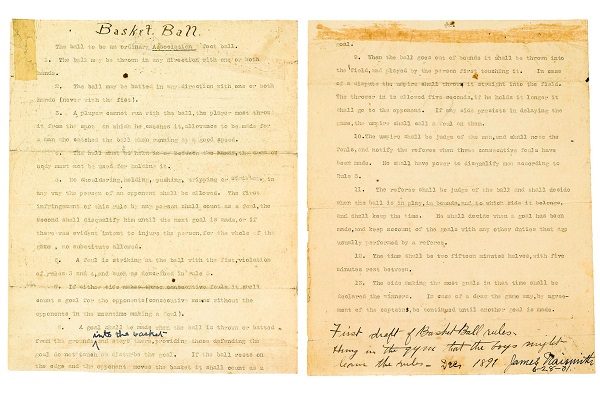 Basket Ball.
The ball to be an ordinary Association foot ball.
1. The ball may be thrown in any direction with one or both
hands.
2. The ball may be batted in any direction with one or both
hands (never with the fist).
3. A player cannot run with the ball, the player must throw
it from the spot on which he catches it, allowance to be made for
a man who catches the ball when running at a good speed.
4. The ball must be held in or between the hands, the arms or
body must not be used for holding it.
5. No shouldering, holding, pushing, tripping or striking, in
any way the person of an opponent shall be allowed. The first
infringement of this rule by any person shall count as a foul, the
second shall disqualify him until the next goal is made, or if
there was evident intent to injure the person, for the whole of the
game, no substitute allowed.
6. A foul is striking at the ball with the fist, violation
of rules 3 and 4, and such as described in rule 5.
7. If either side makes three consecutive fouls it shall
count a goal for the opponents (consecutive means without the
opponents in the meantime making a foul).
8. A goal shall be made when the ball is thrown or batted
into the basket
from the grounds and stays there, providing those defending the
goal do not touch or disturbe the goal. If the ball rests on
the edge and the opponent moves the basket it shall count as a
goal.
9. When the ball goes out of bounds it shall be thrown into
the field, and played by the person first touching it. In case
of a dispute the umpire shall throw it straight into the field.
The thrower in is allowed five seconds, if he holds it longer it
shall go to the opponent. If any side persists in delaying the
game, the umpire shall call a foul on them.
10. The umpire shall be judge of the men, and shall note the
fouls, and notify the referee when three consecutive fouls have
been made. He shall have power to disqualify men according to
Rule 5.
11. The referee shall be judge of the ball and shall decide
when the ball is in play, in bounds, and to which side it belongs,
and shall keep the time. He shall decide when a goal has been
made, and keep account of the goals with any other duties that are
usually performed by a referee.
12. The time shall be two fifteen minutes halves, with five
minutes rest between.
13. The side making the most goals in that time shall be
declared the winners. In case of a draw the game may, by agree-
ment of the captains, be continued until another goal is made.
First draft of Basket Ball rules.
Hung in the gym that the boys might
learn the rules - Dec 1891 James Naismith
6-28-31.